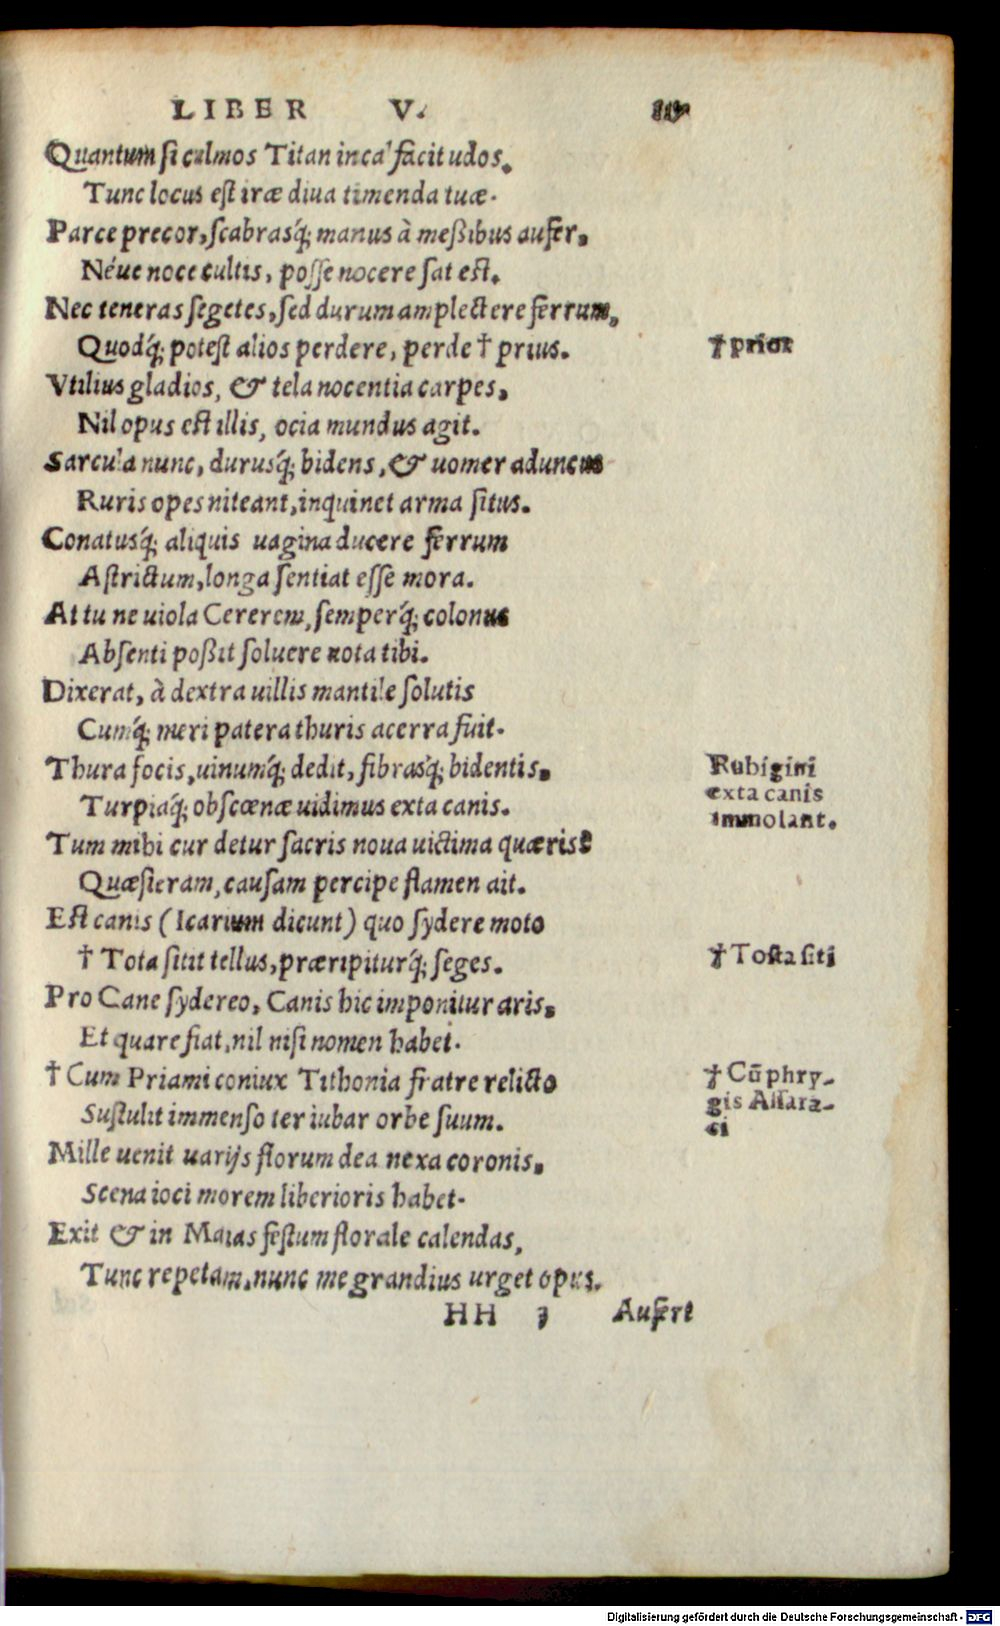 LIBER V.
Quantum si culmos Titan incalfacit udos.
Tunc locus est iræ diua timenda tuæ.
Parce precor, scabrasq́; manus à meßibus aufer,
Néue noce cultis, posse nocere sat est.
Nec teneras segetes, sed durum amplectere ferrum,
Quodq́; potest alios perdere, perde † prius.
† prior
Vtilius gladios, & tela nocentia carpes,
Nil opus est illis, ocia mundus agit.
Sarcula nunc, durusq́; bidens, & uomer aduncus
Ruris opes niteant, inquinet arma situs.
Conatusq́; aliquis uagina ducere ferrum
Astrictum, longa sentiat esse mora.
At tu ne uiola Cererem, semperq́; colonus
Absenti poßit soluere uota tibi.
Dixerat, à dextra uillis mantile solutis
Cumq́; meri patera thuris acerra fuit.
Thura focis, uinumq́; dedit, fibrasq́; bidentis,
Turpiaq́; obscœnæ uidimus exta canis.
Rubigini
exta canis
immolant.
Tum mihi cur detur sacris noua uictima quæris?
Quæsieram, causam percipe flamen ait.
Est canis (Icarium dicunt) quo sydere moto
† Tota sitit tellus, præripiturq́; seges.
† Tosta siti
Pro Cane sydereo, Canis hic imponitur aris,
Et quare fiat, nil nisi nomen habet.
† Cum Priami coniux Tithonia fratre relicto
Sustulit immenso ter iubar orbe suum.
† Cū phry-
gis Assara-
ci
Mille uenit uarijs florum dea nexa coronis,
Scena ioci morem liberioris habet.
Exit & in Maias festum florale calendas,
Tunc repetam, nunc me grandius urget opus.
HH 3 Aufert
Digitalisierung gefördert durch die Deutsche Forschungsgemeinschaft - DFG